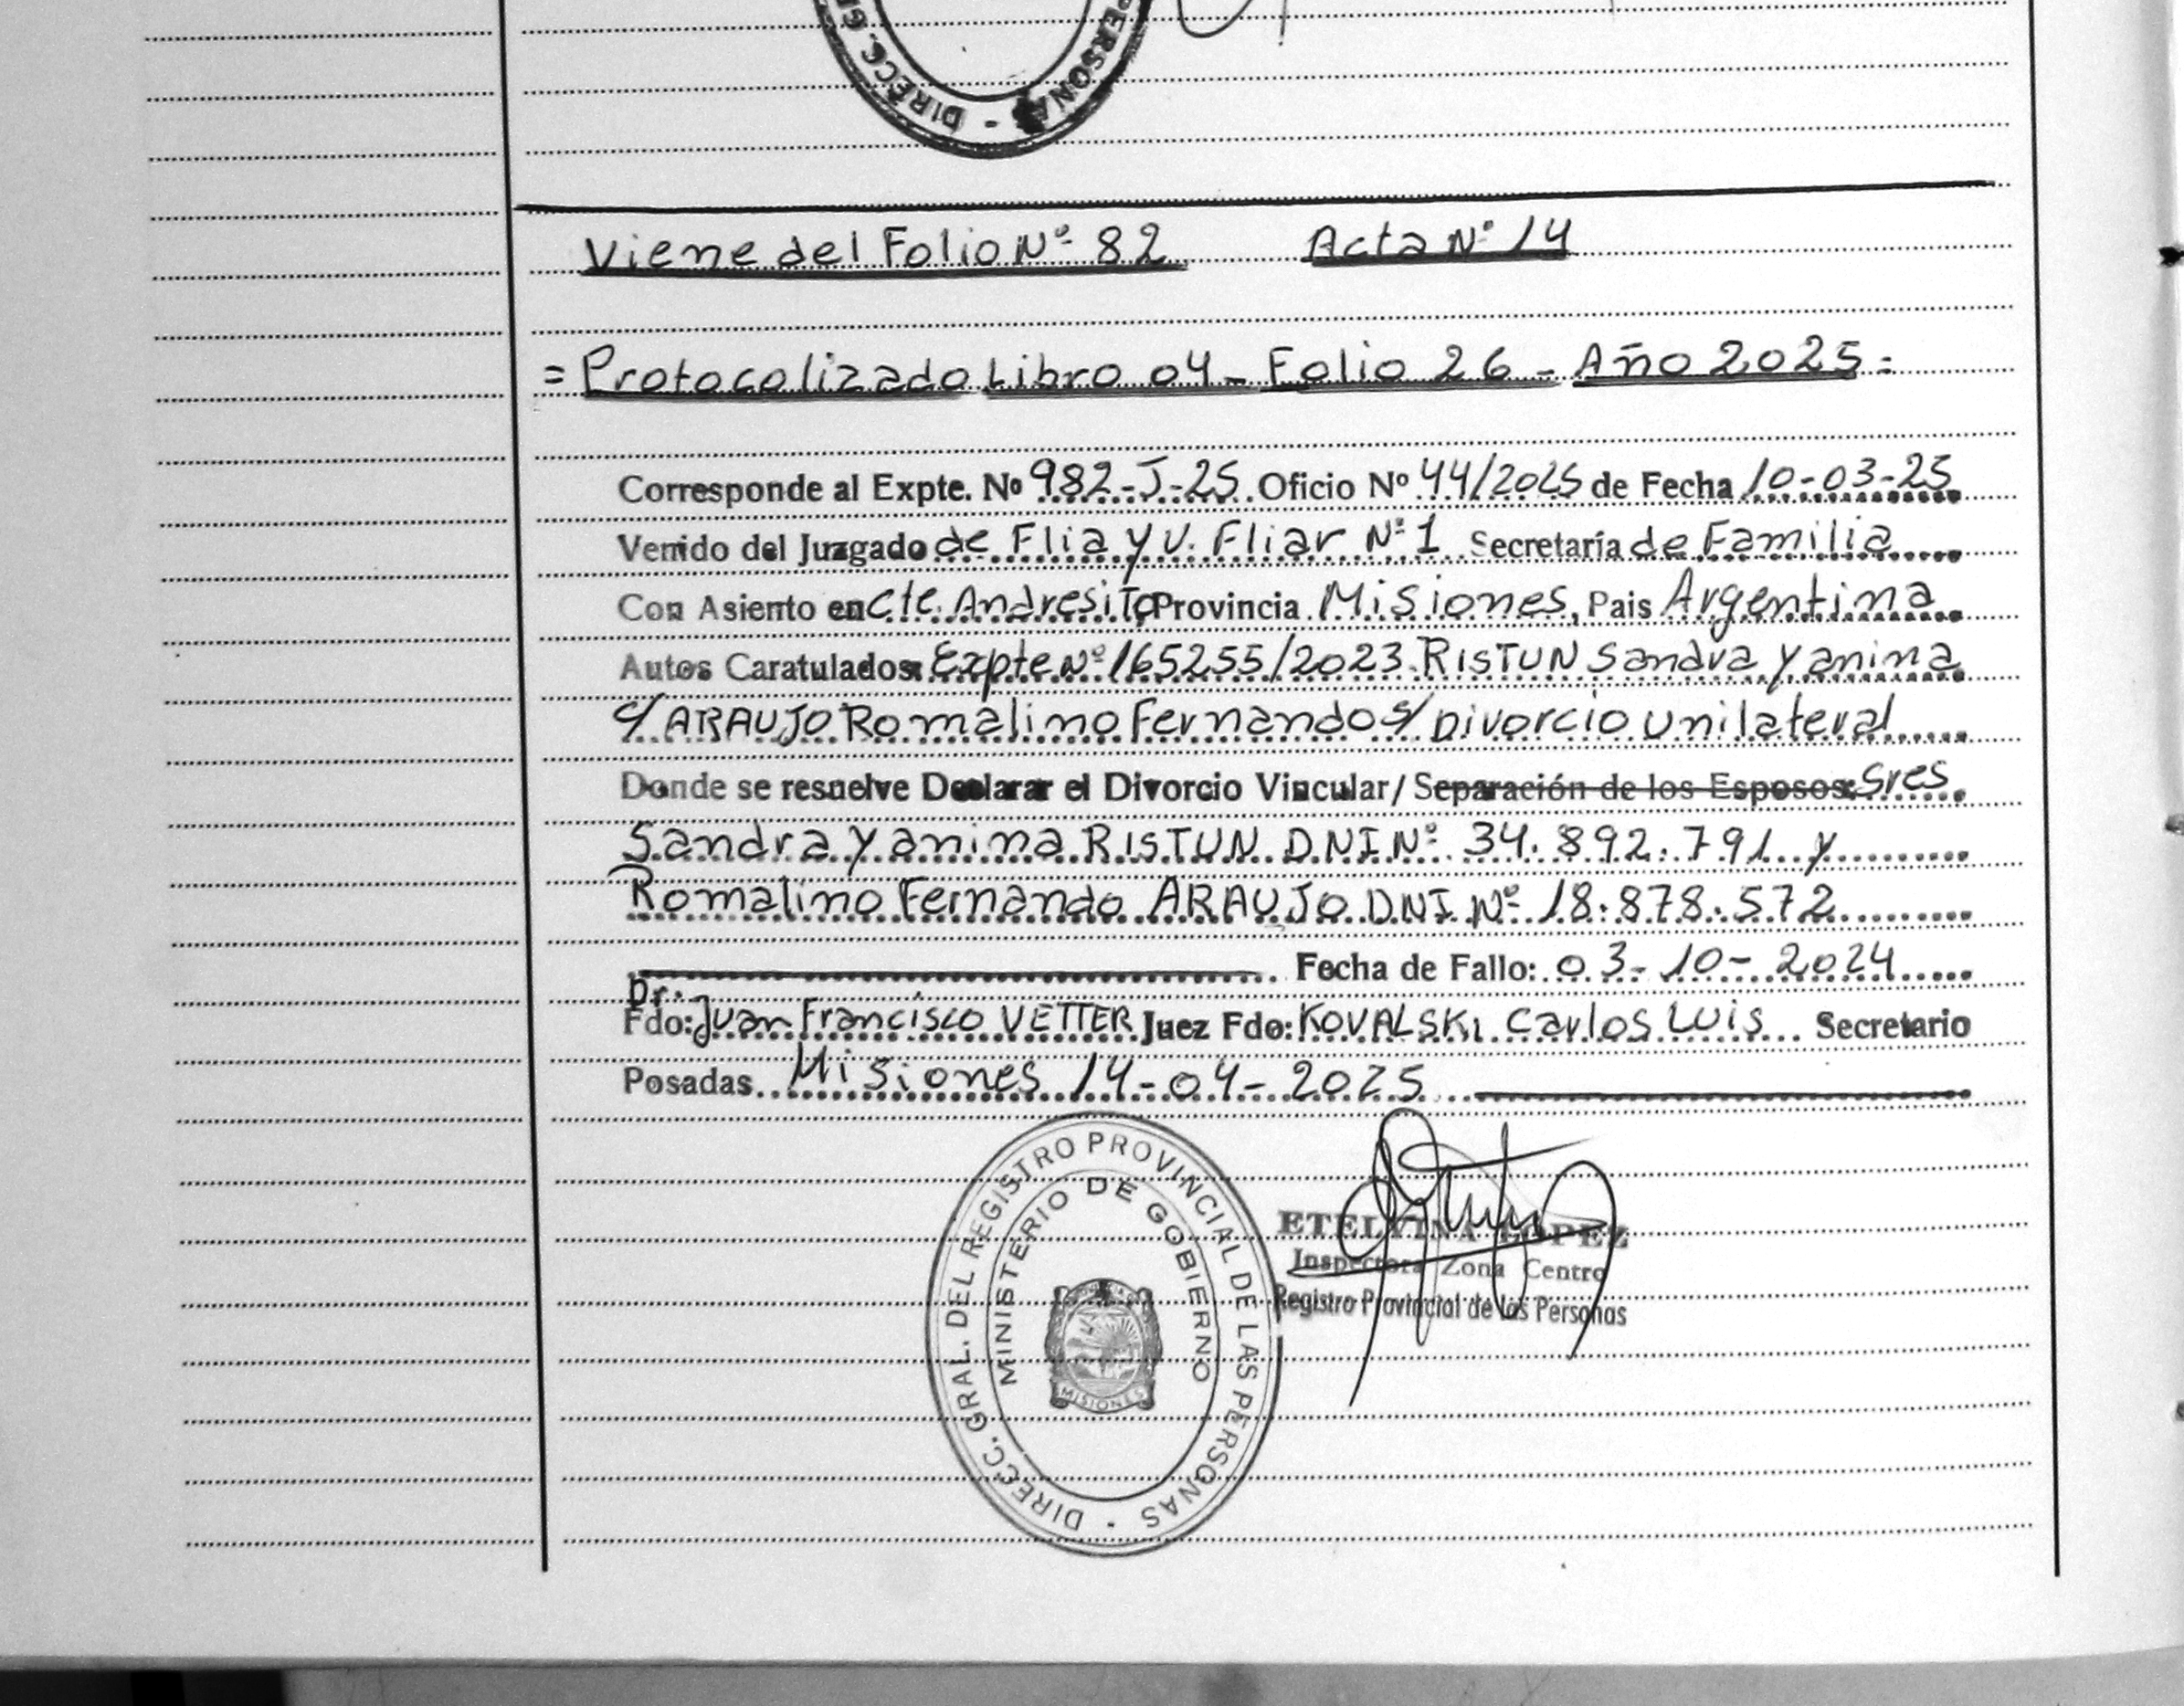 DIRECC. G
PERSONA
Viene del Folio Nº 82 Acta Nº 14
= Protocolizado Libro 04 - Folio 26 - Año 2025 =
Corresponde al Expte. Nº 982-J-25 Oficio Nº 44/2025 de Fecha 10-03-25
Venido del Juzgado de Flia y V. Fliar Nº 1 Secretaría de Familia
Con Asiento en Cte. Andresito Provincia Misiones, Pais Argentina
Autos Caratulados: Expte Nº 165255/2023 RISTUN Sandra Yanina
c/ ARAUJO Romalino Fernando s/ Divorcio Unilateral
Donde se resuelve Declarar el Divorcio Vincular / Separación de los Esposos: Sres
Sandra Yanina RISTUN DNI Nº 34.892.791 y
Romalino Fernando ARAUJO DNI Nº 18.878.572
Fecha de Fallo: 03-10-2024
Dr.
Fdo: Juan Francisco VETTER Juez Fdo: KOVALSKI Carlos Luis Secretario
Posadas Misiones 14-04-2025
DIRECC. GRAL. DEL REGISTRO PROVINCIAL DE LAS PERSONAS
MINISTERIO DE GOBIERNO
MISIONES
ETELVINA LOPEZ
Inspectora Zona Centro
Registro Provincial de las Personas